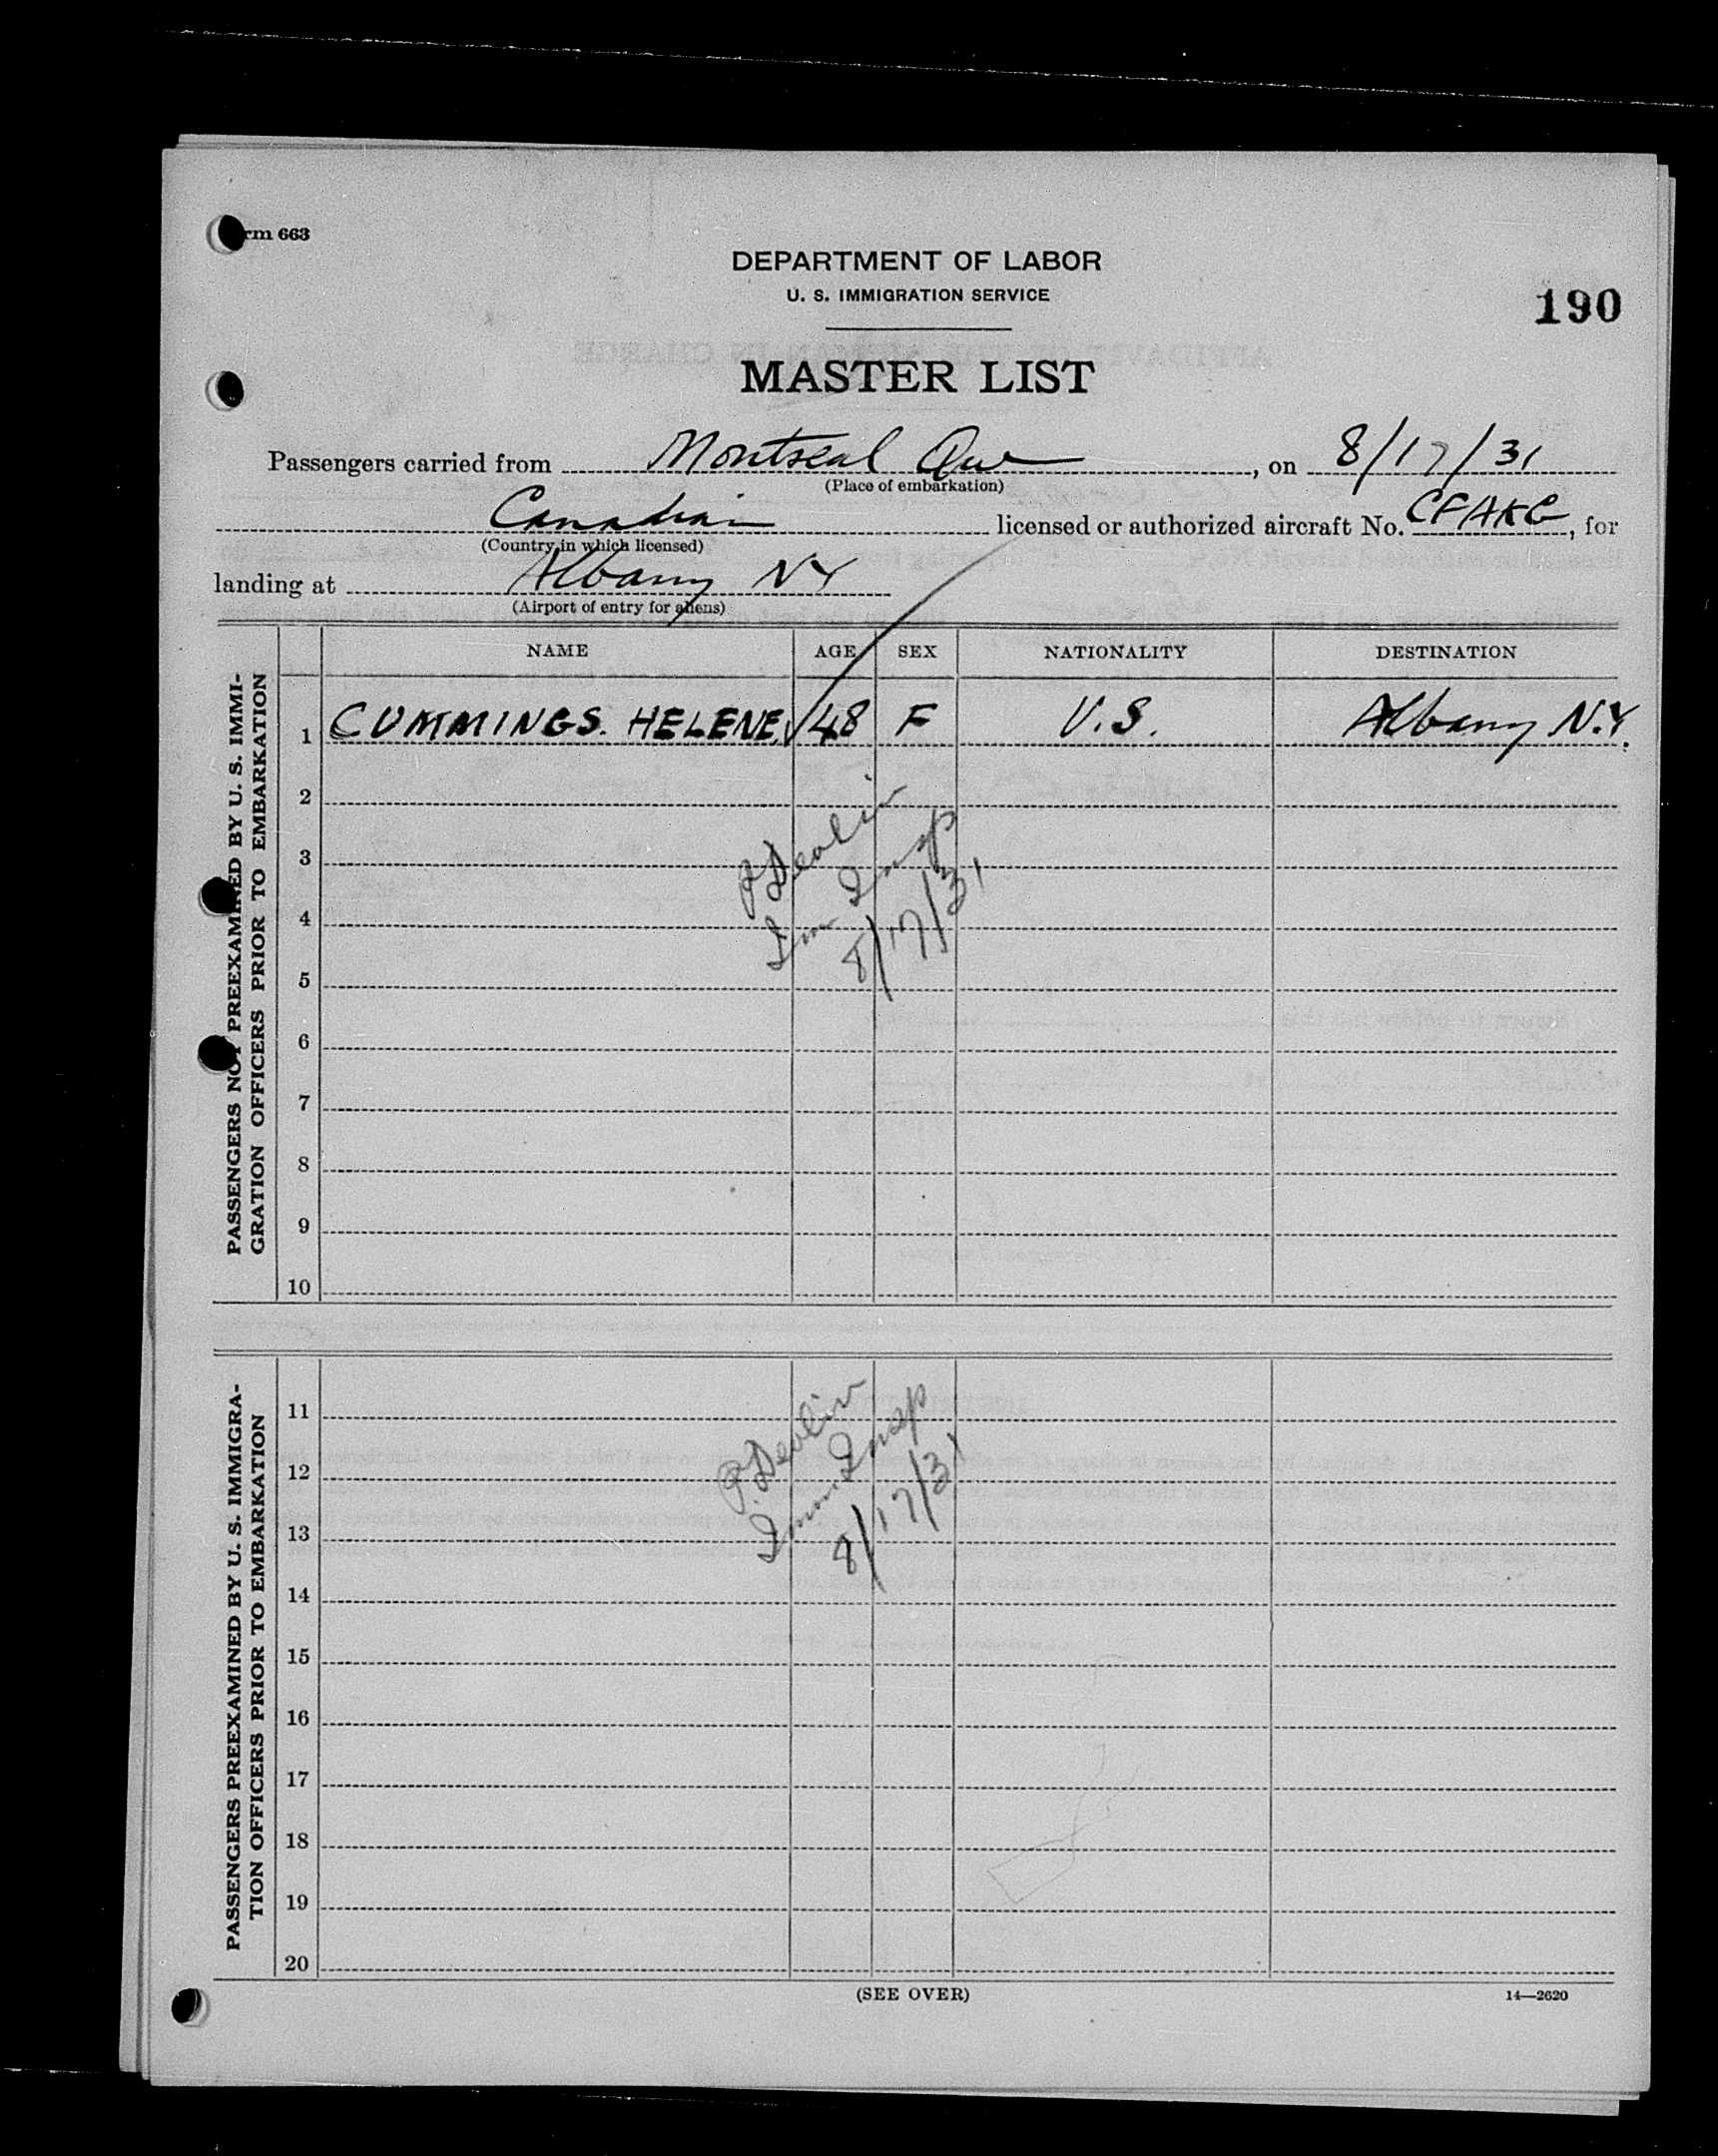 Form 663
DEPARTMENT OF LABOR
U. S. IMMIGRATION SERVICE
190
MASTER LIST
Passengers carried from Montreal Que, on 8/17/31
(Place of embarkation)
Canadian licensed or authorized aircraft No. CFAKG, for
(Country in which licensed)
landing at Albany NY
(Airport of entry for aliens)
NAME AGE SEX NATIONALITY DESTINATION
PASSENGERS NOT PREEXAMINED BY U. S. IMMI-
GRATION OFFICERS PRIOR TO EMBARKATION
1 CUMMINGS. HELENE. 48 F U.S. Albany N.Y.
2
3
4
5
6
7
8
9
10
P Devlin
Im Insp
8/17/31
PASSENGERS PREEXAMINED BY U. S. IMMIGRA-
TION OFFICERS PRIOR TO EMBARKATION
11
12
13
14
15
16
17
18
19
20
P. Devlin
Imm Insp
8/17/31
(SEE OVER)
14—2620